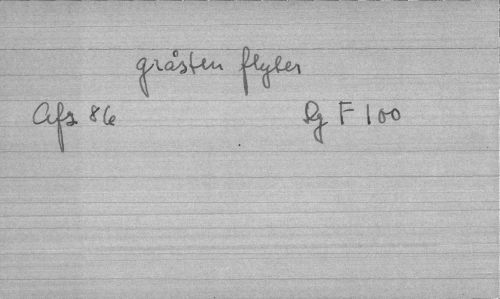 gråsten flyter
Afz 86 Sg F 100